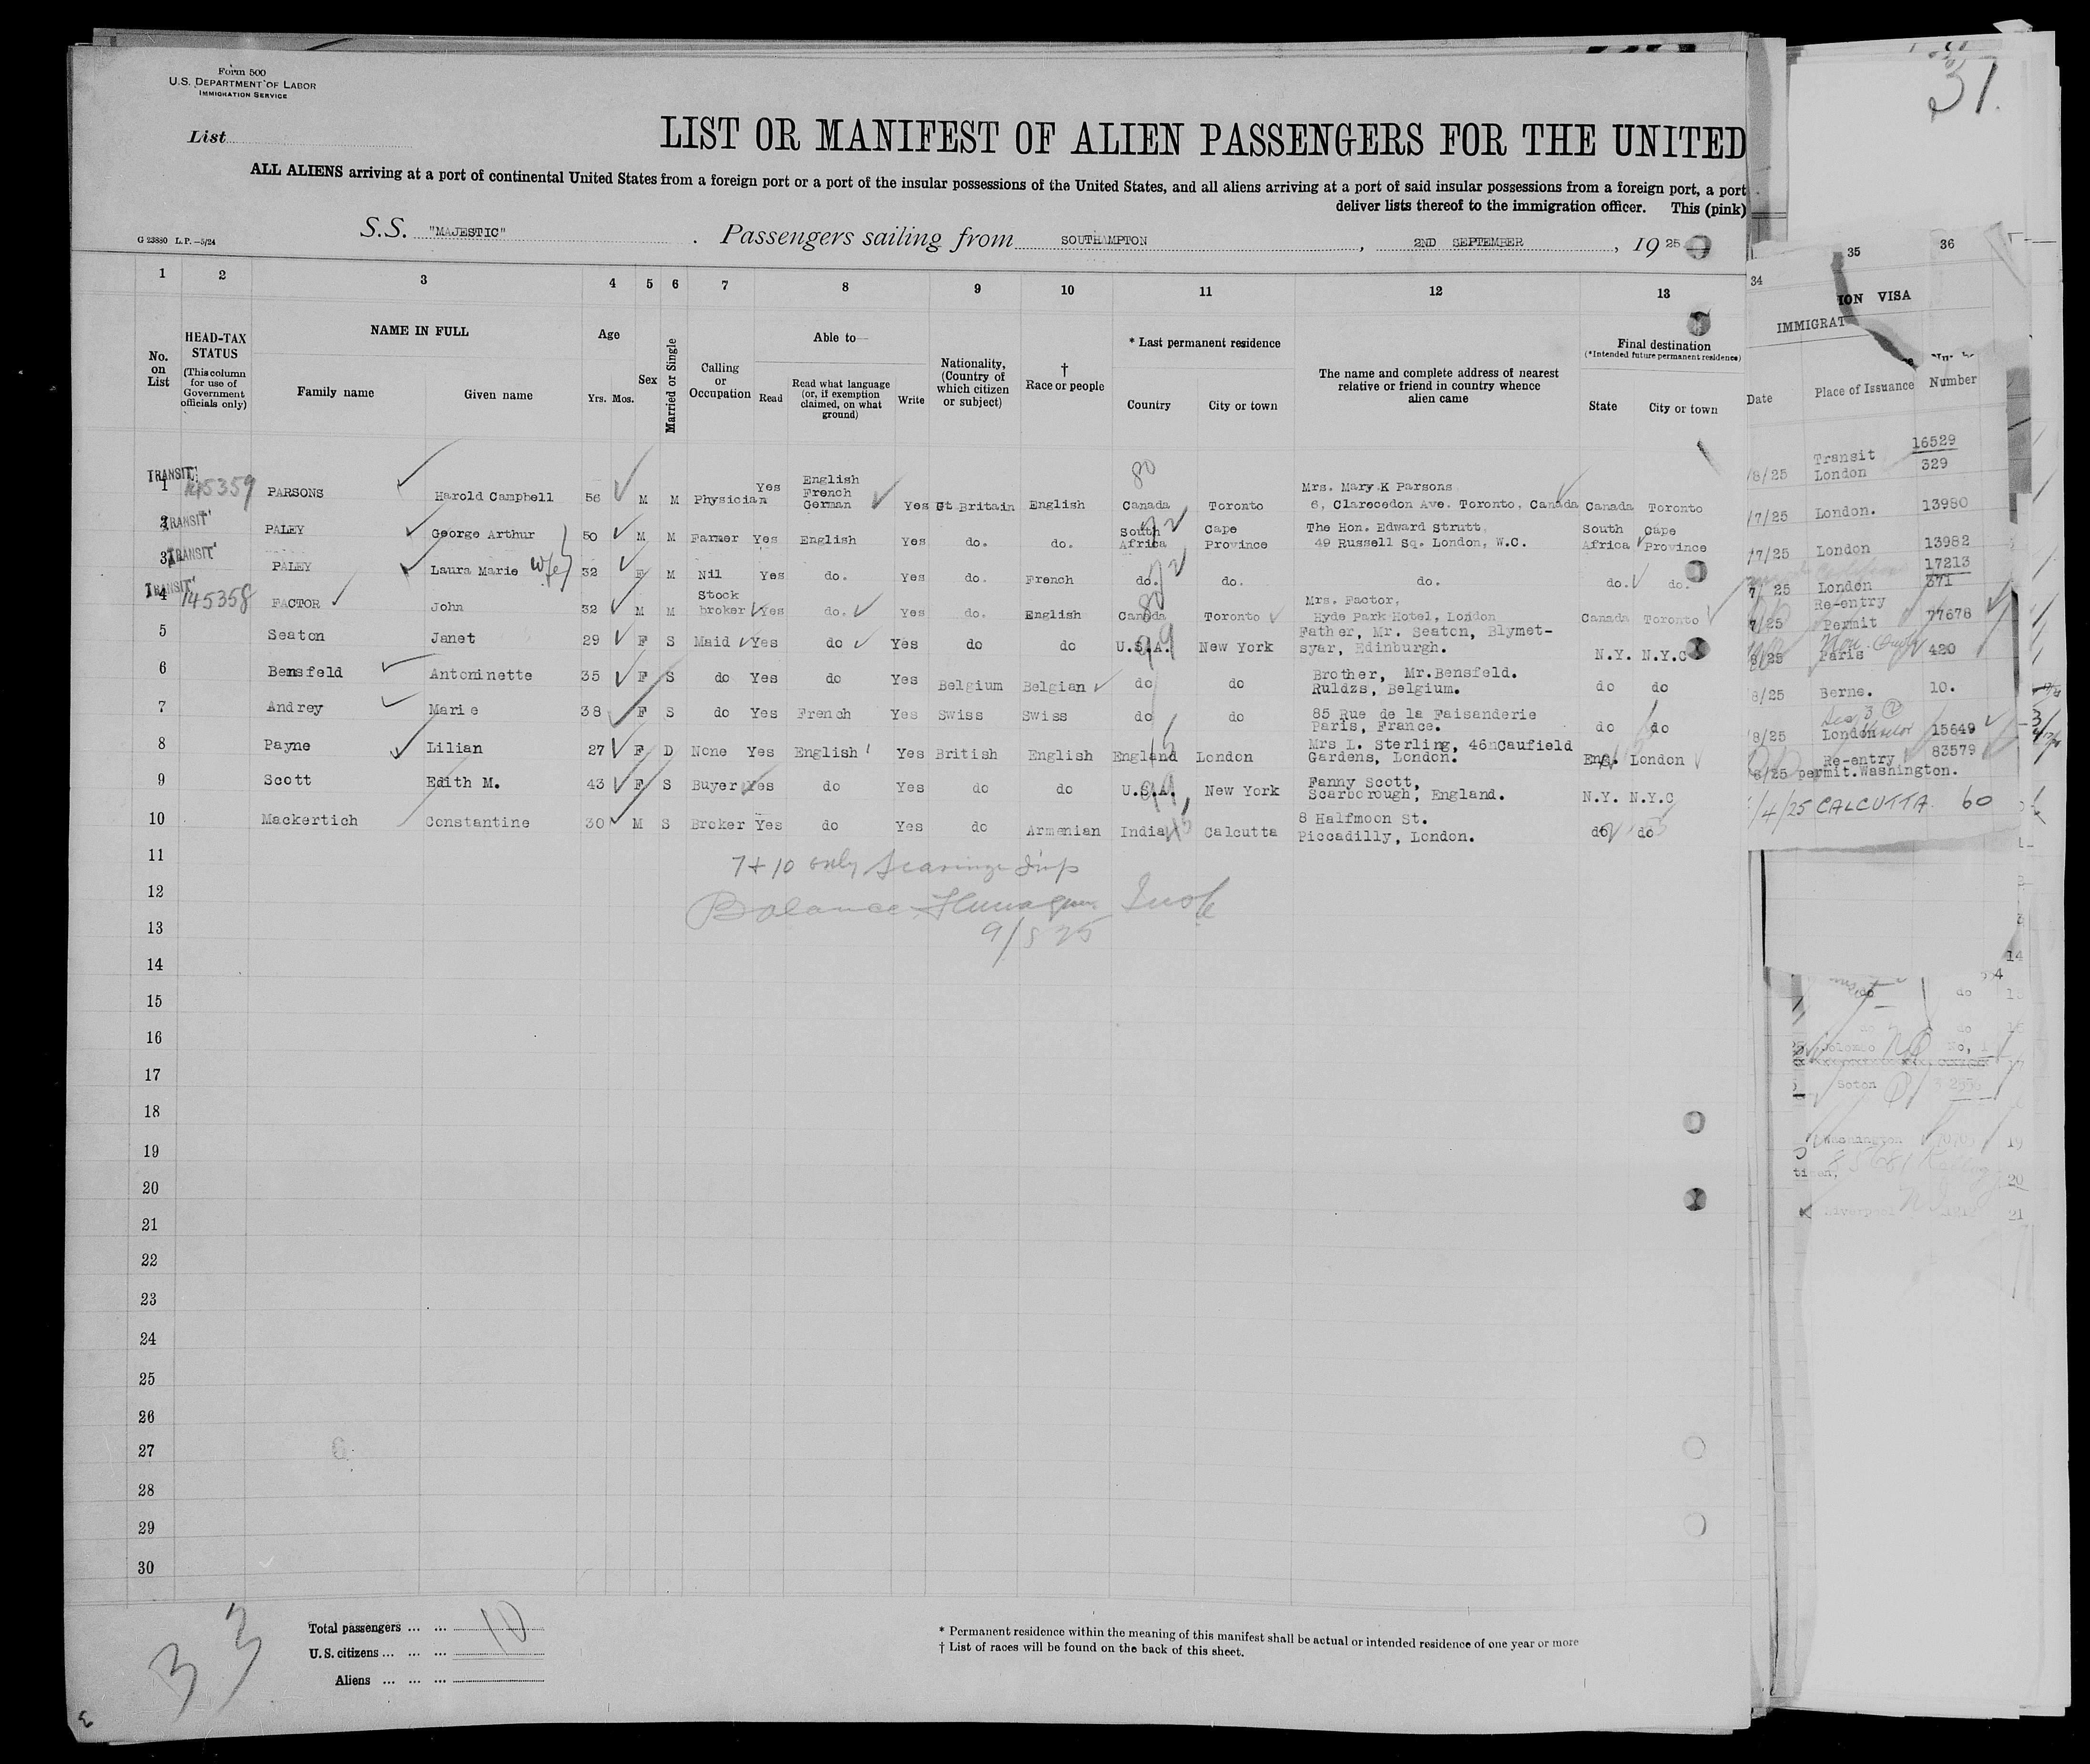 Form 500
U.S. DEPARTMENT OF LABOR
IMMIGRATION SERVICE
37.
List
LIST OR MANIFEST OF ALIEN PASSENGERS FOR THE UNITED
ALL ALIENS arriving at a port of continental United States from a foreign port or a port of the insular possessions of the United States, and all aliens arriving at a port of said insular possessions from a foreign port, a port
deliver lists thereof to the immigration officer. This (pink)
G 23880 L.P.—5/24
S.S. "MAJESTIC" . Passengers sailing from SOUTHAMPTON, 2ND SEPTEMBER, 1925
1 2 3 4 5 6 7 8 9 10 11 12 13 34 35 36
No. on List
HEAD-TAX STATUS (This column for use of Government officials only)
NAME IN FULL
Family name Given name
Age
Yrs. Mos.
Sex
Married or Single
Calling or Occupation
Able to—
Read
Read what language (or, if exemption claimed, on what ground)
Write
Nationality, (Country of which citizen or subject)
† Race or people
* Last permanent residence
Country City or town
The name and complete address of nearest relative or friend in country whence alien came
Final destination
(*Intended future permanent residence)
State City or town
IMMIGRAT ION VISA
Date Place of Issuance Number
TRANSIT 1 145359 PARSONS Harold Campbell 56 M M Physician Yes English French German Yes Gt Britain English 80 Canada Toronto Mrs. Mary K Parsons 6, Clarecedon Ave. Toronto, Canada Canada Toronto /8/25 Transit London 16529 329
TRANSIT 2 PALEY George Arthur 50 M M Farmer Yes English Yes do. do. South Africa Cape Province The Hon. Edward Strutt 49 Russell Sq. London, W.C. South Africa Cape Province /7/25 London. 13980
TRANSIT 3 PALEY Laura Marie wife 32 F M Nil Yes do. Yes do. French do. do. do. do. do. /7/25 London 13982
TRANSIT 4 145358 FACTOR John 32 M M Stock broker Yes do. Yes do. English Canada Toronto Mrs. Factor, Hyde Park Hotel, London Canada Toronto 7/25 London 17213 371
5 Seaton Janet 29 F S Maid Yes do Yes do do U.S.A. New York Father, Mr. Seaton, Blymet-syar, Edinburgh. N.Y. N.Y.C 7/25 Re-entry Permit 77678
6 Bensfeld Antoninette 35 F S do Yes do Yes Belgium Belgian do do Brother, Mr.Bensfeld. Ruldzs, Belgium. do do 8/25 Paris 420
7 Andrey Marie 38 F S do Yes French Yes Swiss Swiss do do 85 Rue de la Faisanderie Paris, France. do do 8/25 Berne. 10.
8 Payne Lilian 27 F D None Yes English Yes British English England London Mrs L. Sterling, 46nCaufield Gardens, London. Eng. London 8/25 London 15649
9 Scott Edith M. 43 F S Buyer Yes do Yes do do U.S.A. New York Fanny Scott, Scarborough, England. N.Y. N.Y.C 8/25 Re-entry permit.Washington. 83579
10 Mackertich Constantine 30 M S Broker Yes do Yes do Armenian India Calcutta 8 Halfmoon St. Piccadilly, London. do do /4/25 CALCUTTA 60
11
7 + 10 only
12
13
14
15
16
17
18
19
20
21
22
23
24
25
26
27
28
29
30
Total passengers ... ... 10
U.S. citizens ... ... ...
Aliens ... ... ...
33
* Permanent residence within the meaning of this manifest shall be actual or intended residence of one year or more
† List of races will be found on the back of this sheet.